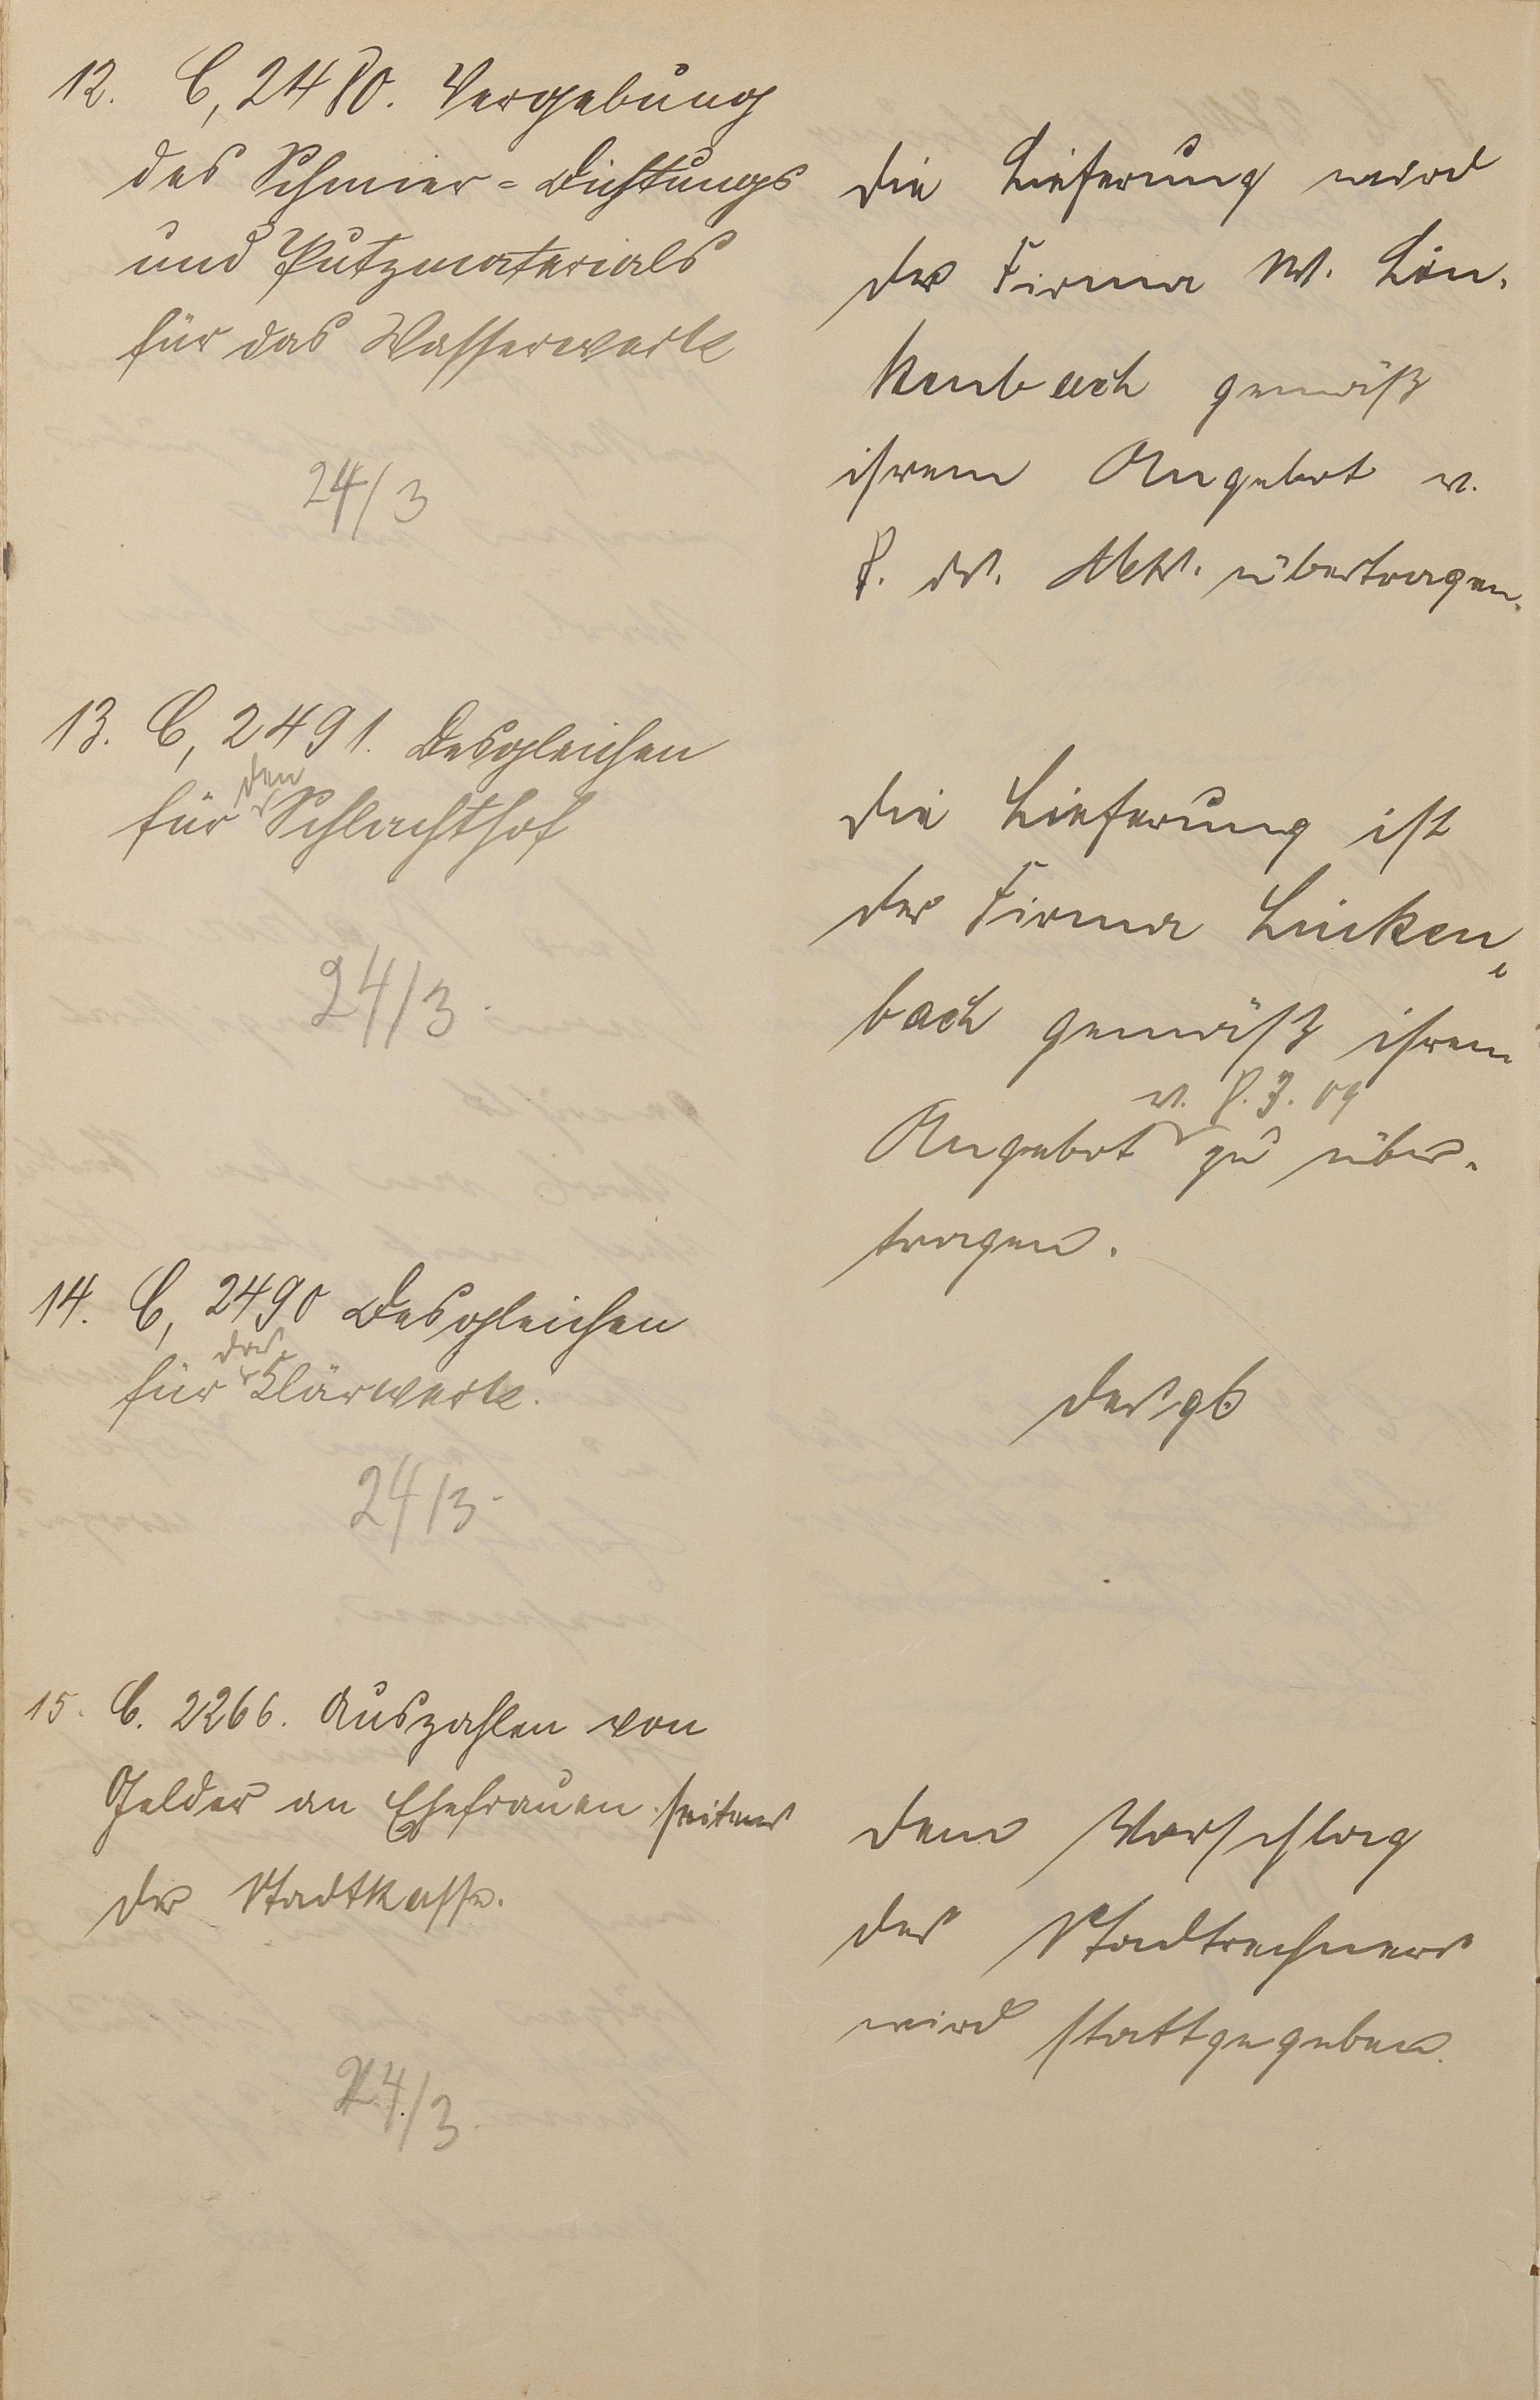 12. C, 2480. Vergebung
des Schmier = Dichtungs
und Putzmaterials
für das Wasserwerk
24/3
Die Lieferung wird
der Firma W. Lin-
kenbach gemäß
ihrem Angebot v.
8. ds. Mts. übertragen.
13. C, 2491. Desgleichen
für den Schlachthof
24/3.
Die Lieferung ist
der Firma Linken-
bach gemäß ihrem
Angebot v. 8.3.09 zu über-
tragen.
14. C, 2490 Desgleichen
für das Klärwerk.
24/3.
desgl
15. C. 2266. Auszahlen von
Gelder an Ehefrauen seitens
der Stadtkasse.
24./3.
Dem Vorschlag
des Stadtrechners
wird stattgegeben.